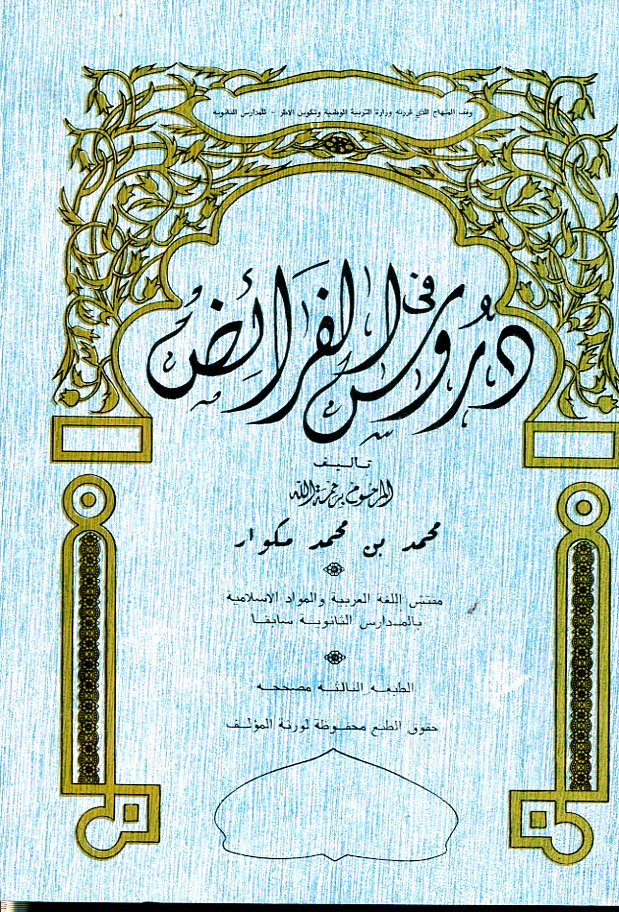 وفق المنهاج الذي قررته وزارة التربية الوطنية وتكوين الأطر - للمدارس الثانوية
دُرُوسٌ في الفَرَائِض
تاليف
المرحوم برحمة الله
محمد بن محمد مكوار
مفتش اللغة العربية والمواد الاسلامية
بالمدارس الثانوية سابقا
الطبعة الثالثة مصححة
حقوق الطبع محفوظة لورثة المؤلف